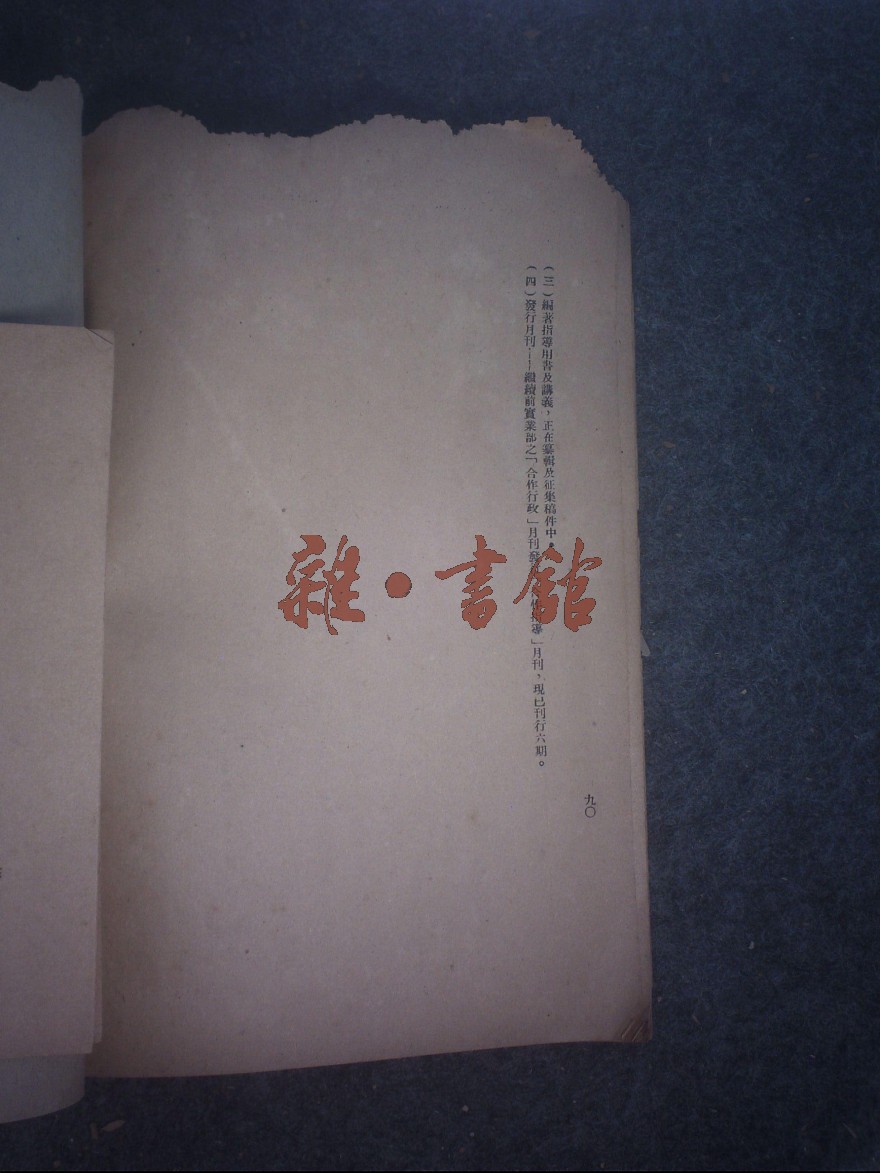 （三）編著指導用書及講義，正在纂輯及征集稿件中。
（四）發行月刊——繼續前實業部之「合作行政」月刊發指導」月刊，現已刊行六期。
九〇
雜·書館